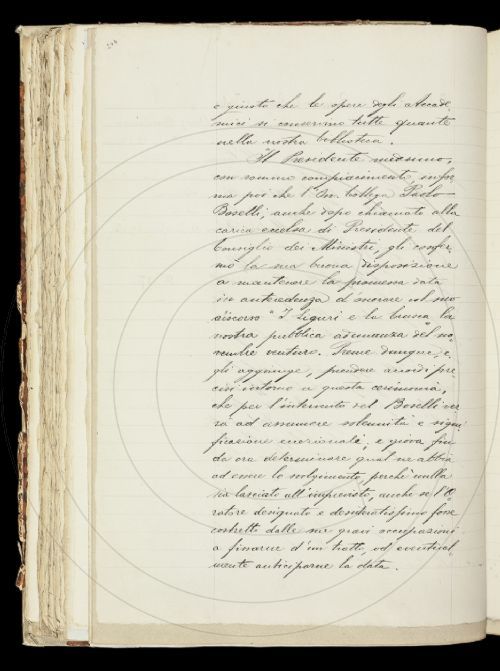 è giusto che le opere degli Accade-
mici si conservino tutte quante
nella nostra biblioteca.
Il Presidente medesimo,
con sommo compiacimento, infor-
ma poi che l'On. Collega Paolo
Boselli, anche dopo chiamato alla
carica eccelsa di Presidente del
Consiglio dei Ministri, gli confer-
mò la sua buona disposizione
a mantenere la promessa data
in antecedenza d'onorare col suo
discorso "I Liguri e la Crusca" la
nostra pubblica adunanza del no-
vembre venturo. Preme dunque, e-
gli aggiunge, prendere accordi pre-
cisi intorno a questa cerimonia,
che per l'intervento del Boselli ver-
rà ad assumere solennità e signi-
ficazione eccezionale; e giova fin
da ora determinare qual ne abbia
ad essere lo svolgimento, perchè nulla
sia lasciato all'imprevisto, anche se l'O-
ratore designato e desideratissimo fosse
costretto dalle sue gravi occupazioni
a finirne d'un tratto, od eventual-
mente anticiparne la data.